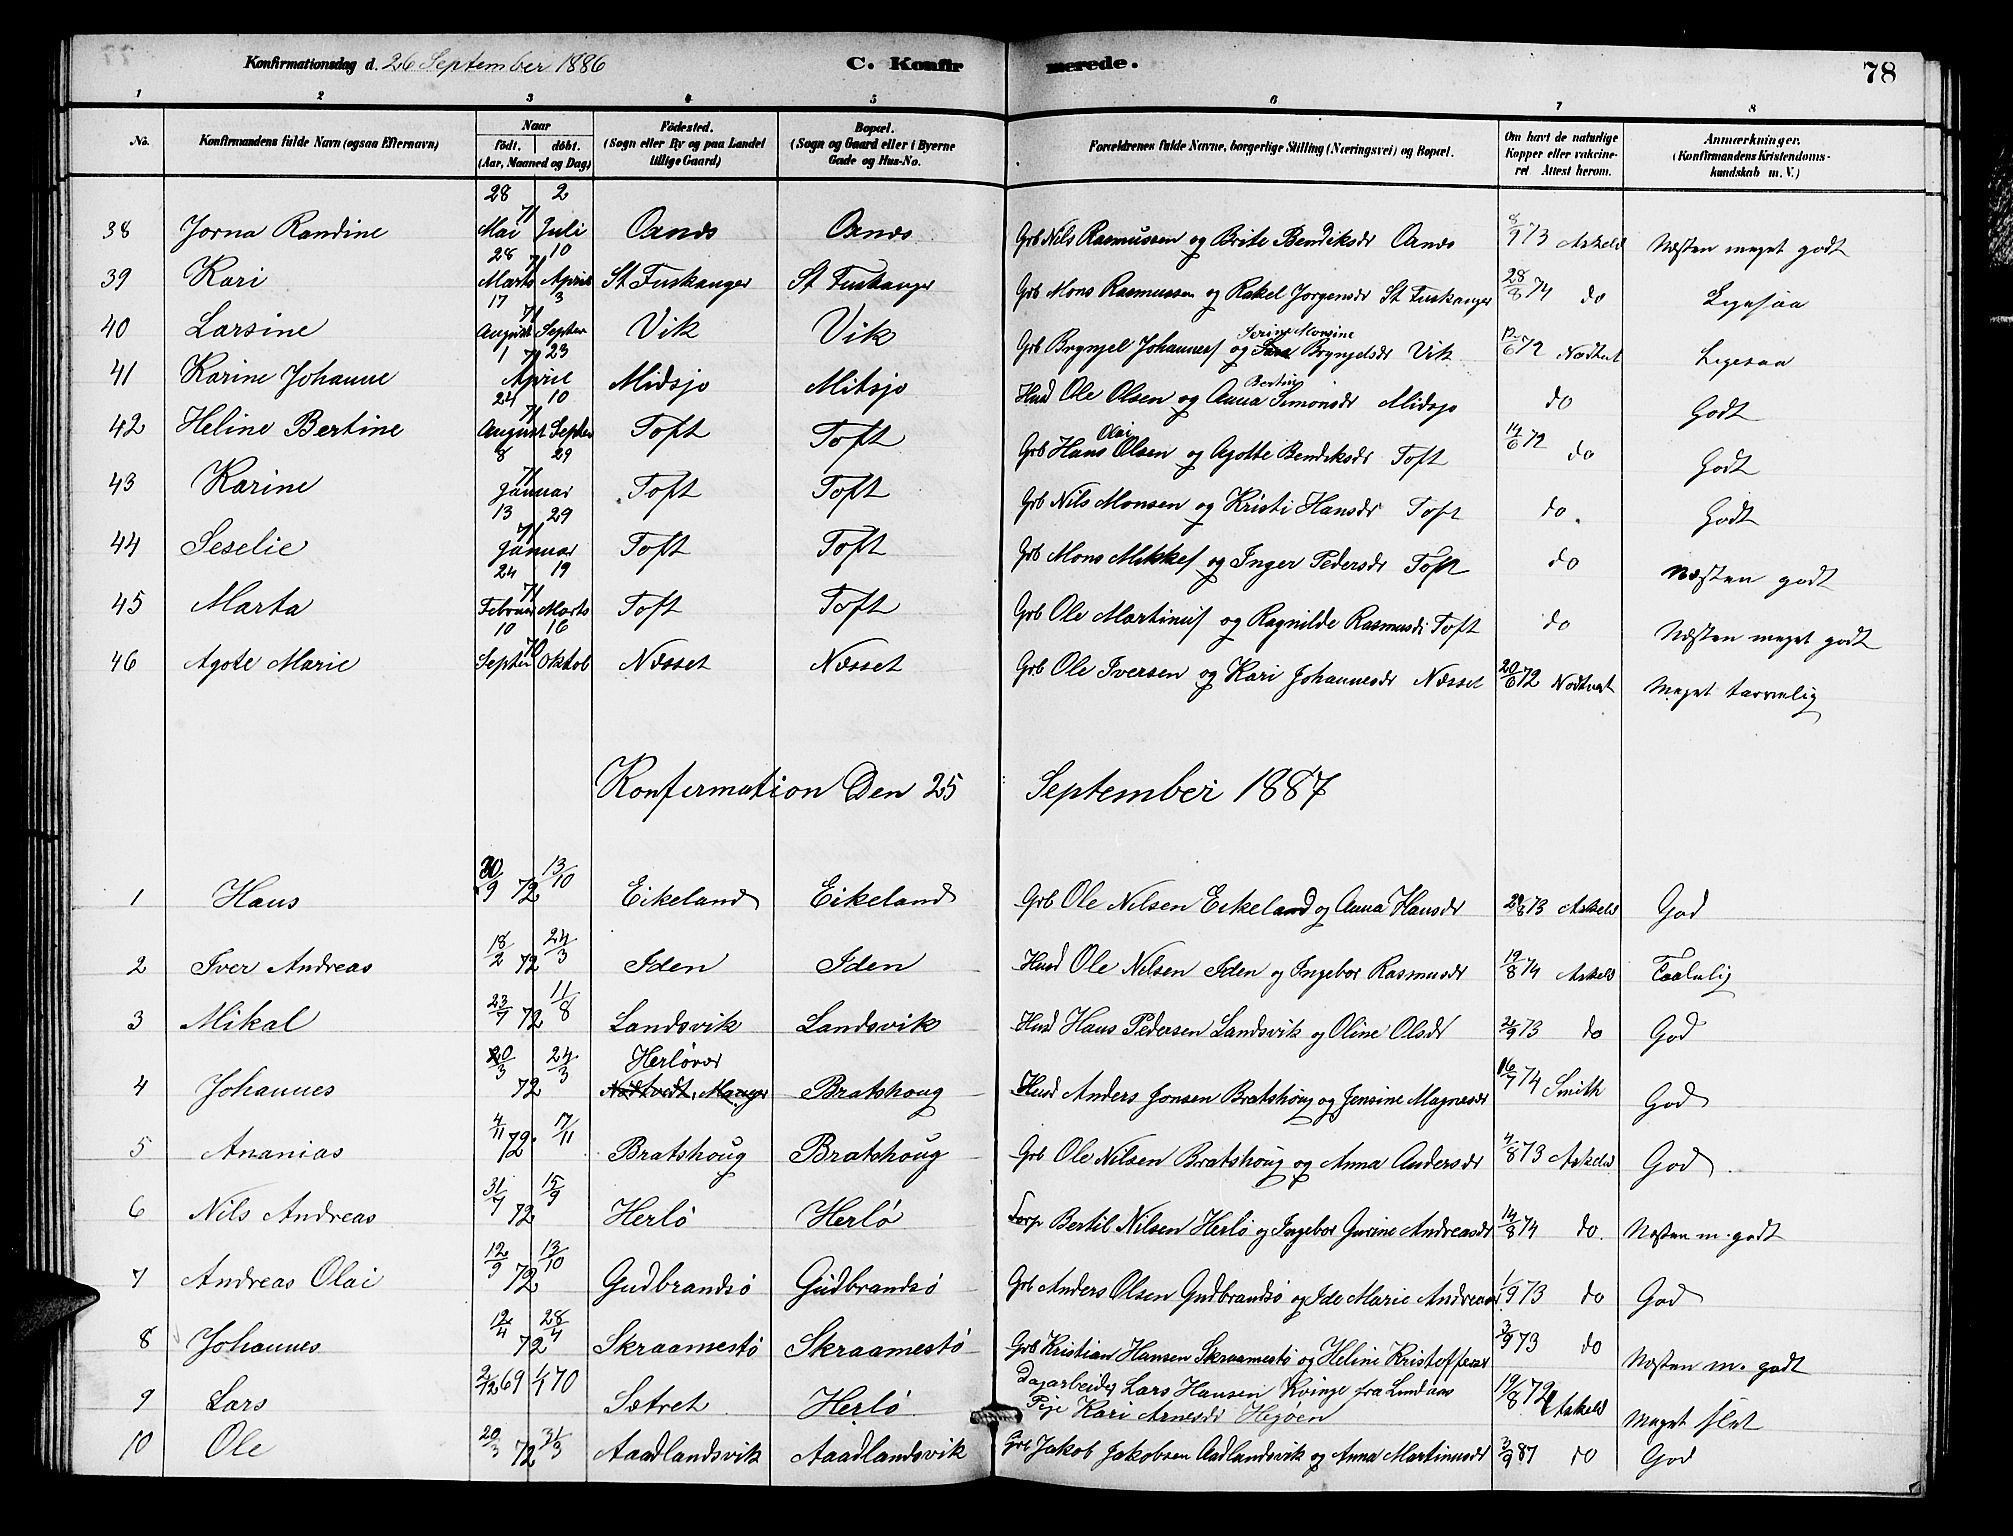 Konfirmationsdag d. 26 September 1886 C. Konfirmerede. 78
1 2 3 4 5 6 7 8
No. Konfirmandens fulde Navn (ogsaa Efternavn) Naar født. døbt. (Aar, Maaned og Dag) Fødested. (Sogn eller By og paa Landet tillige Gaard) Bopæl. (Sogn og Gaard eller i Byerne Gade og Hus-No. Forældrenes fulde Navne, borgerlige Stilling (Næringsvei) og Bopæl. Om havt de naturlige Kopper eller vakcineret Attest herom. Anmærkninger. (Konfirmandens Kristendomskundskab m. V.)
28 2
38 Jorna Randine Mai 71 Juli Oanes Oanes Grb Nils Rasmussen og Brite Bendiksdr Oanes 8/9 73 Askeld Næsten meget godt
28 10
39 Kari Marts 71 April St Fuskanger St Fuskanger Grb Mons Rasmussen og Rakel Jorgensdr St Fuskanger 28/8 74 do Ligesaa
17 3
40 Larsine August 71 Septer Vik Vik Grb Brynjel Johannes og Serine Monsine Brynjelsdr Vik 12/6 72 Nodtvet Ligesaa
1 23
41 Karine Johanne April 71 Midsjo Mitsjo Husd Ole Olsen og Anna Bertin Simonsdr Midsjo do Godt
24 10
42 Heline Bertine August 71 Septer Toft Toft Grb Hans Olai Olsen og Agotte Bendiksdr Toft 14/6 72 do Godt
8 29
43 Karine Januar 71 Toft Toft Grb Nils Monsen og Kristi Hansdr Toft do Godt
13 29
44 Seselie Januar 71 Toft Toft Grb Mons Mikkels og Inger Pedersdr Toft do Næsten godt
24 19
45 Marta Februar 71 Marts Toft Toft Grb Ole Martinus og Ragnilde Rasmusdr Toft do Næsten meget godt
10 16
46 Agote Marie Septer 70 Oktob Næsset Næsset Grb Ole Iversen og Kari Johannesdr Næsset 20/6 72 Nodtvet Meget tarvelig
Konfirmation Den 25 September 1887
1 Hans 30/9 72 13/10 Eikeland Eikeland Grb Ole Nilsen Eikeland og Anna Hansdr 29/8 73 Askeld God
2 Iver Andreas 18/2 72 24/3 Iden Iden Husd Ole Nilsen Iden og Ingebor Rasmusdr 19/8 74 Askeld Taalelig
3 Mikal 23/7 72 11/8 Landsvik Landsvik Husd Hans Pedersen Landsvik og Oline Olsdr 2/9 73 do God
Herløvær
4 Johannes 20/3 72 24/3 Nødtvedt, Manger Bratshoug Husd Anders Jonsen Bratshoug og Jensine Magnesdr 16/7 74 Smith God
5 Ananias 4/11 72 17/11 Bratshoug Bratshoug Grb Ole Nilsen Bratshoug og Anna Andersdr 4/8 73 Askeld God
6 Nils Andreas 31/7 72 15/9 Herlö Herlö Forp Bertil Nilsen Herlö og Ingebor Gurine Andreasdr 14/8 74 do. Næsten m. godt
7 Andreas Olai 12/9 72 13/10 Gudbrandsö Gudbrandsö Grb Anders Olsen Gudbrandsö og Ide Marie Andreas 1/9 73 do God
8 Johannes 12/4 72 28/4 Skraamestö Skraamestö Grb Kristian Hansen Skraamestö og Heline Kristoffersdr 3/9 73 do Næsten m. godt
9 Lars 2/12 69 1/1 70 Sætret Herlö Dagarbeider Lars Hansen Kvinge fra Lindaas 19/8 72 Askeld Meget slet
Pige Kari Arnesdr Hejöen
10 Ole 20/3 72 31/3 Aaadlandsvik Aaadlandsvik Grb Jakob Jakobsen Aadlandsvik og Anna Martinusdr 3/9 87 do God